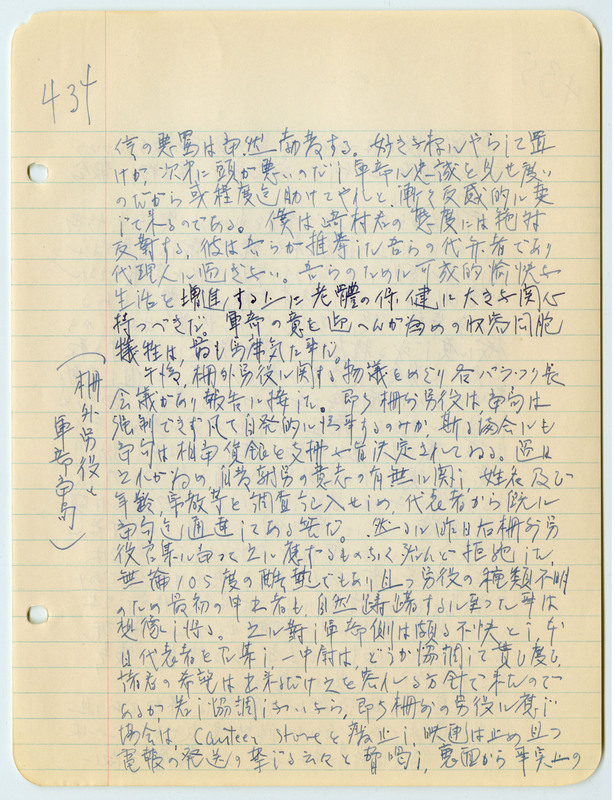 434
僚の悪罵は当然勃発する。好き様にやらして置
けが、次第に頭が悪いのだ、軍部に忠誠を見せ度い
のだから或程度迄助けてやれと、漸々反感的に変
じて来るのである。僕は崎村君の態度には絶対
反対する。彼は吾らが推挙した吾らの代弁者であり
代理人に過ぎない。吾らのために可成的愉快な
生活を増進する上に老體の保健に大きな関心
持つべきだ。軍部の意を迎へんが為めの収容同胞
犠牲は、最も馬鹿気た事だ。
午後、柵外労役に関する物議をめぐり各バラック長
会議があり報告に接した。即ち柵外労役は当局は
強制できず凡て自発的に従事するのみか、斯る場合にも
当局は相当賃銀を支拂ふ旨決定されてゐる。過日
これが為め、自発労の意志の有無に関し、姓名及び
年齢、宗教等を調査記入せしめ、代表者から既に
当局迄通達してある筈だ。然るに昨日右柵外労
役召集に当って之に應ずるものなく殆んど拒絶した。
無論105度の酷熱でもあり且つ労役の種類不明
のため最初の申出者も、自然躊躇するに至った事は
想像し得る。之に対し軍部側は頗る不快とし本
日代表者を召集し一中尉は、どうか協調して貰し度い、
諸君の希望は出来るだけ之を容れる方針で来たので
あるが、若し協調しないなら、即ち柵外の労役に質し
場合は、Canteen Storeを廃止し、映画は止め且つ
電報の発送の禁じる云々と脅喝し、裏面から事実上の
(柵外労役と
軍部当局)